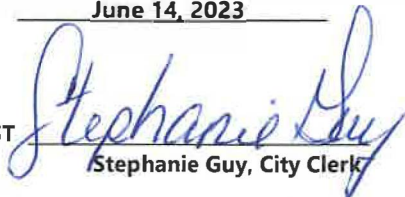 June 14, 2023
ST Stephanie Guy
Stephanie Guy, City Clerk